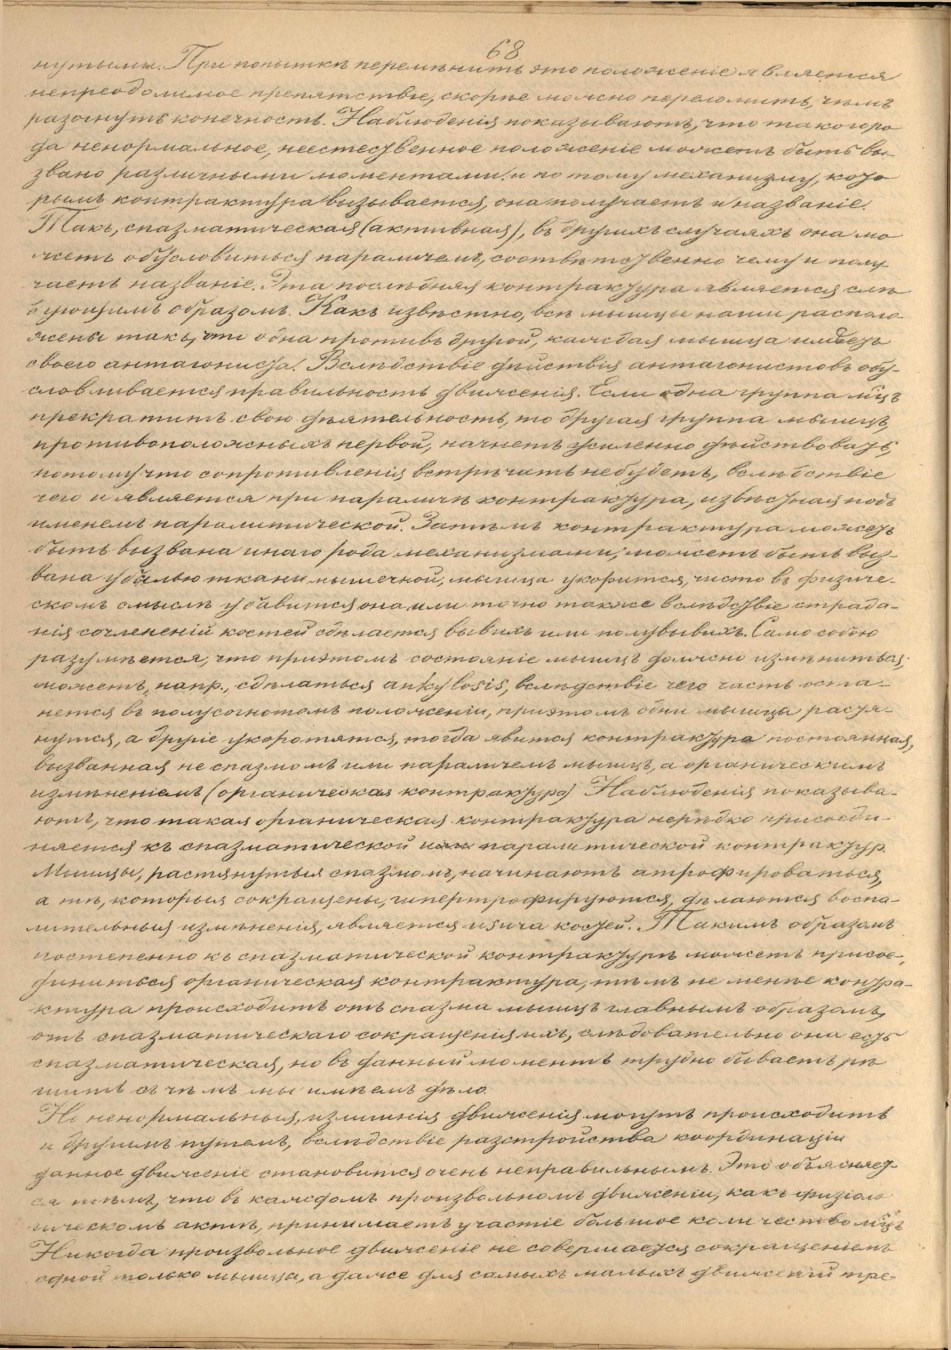 68
нутымъ. При попыткѣ перемѣнить это положеніе является
непреодолимое препятствіе, скорѣе можно переломить, чѣмъ
разогнуть конечность. Наблюденія показываютъ, что такого ро
да ненормальное, неестественное положеніе можетъ быть вы-
звано различными моментами и по тому механизму, кото
рымъ контрактура вызывается, она получаетъ и названіе.
Такъ, спазматическая (активная), въ другихъ случаяхъ она мо
жетъ обусловиться параличемъ, соотвѣтственно чему и полу
чаетъ названіе. Эта послѣдняя контрактура является слѣ
дующимъ образомъ. Какъ извѣстно, всѣ мышцы наши располо-
жены такъ, что одна противъ другой, каждая мышца имѣетъ
своего антагониста. Вслѣдствіе дѣйствія антагонистовъ обу-
словливается правильность движенія. Если одна группа м̃цъ
прекратитъ свою дѣятельность, то другая группа мышцъ
противоположныхъ первой, начнетъ усиленно дѣйствовать,
потому что сопротивленія встрѣчать не будетъ, вслѣдствіе
чего и является при параличѣ контрактура, извѣстная подъ
именемъ паралитической. Затѣмъ контрактура можетъ
быть вызвана инаго рода механизмами; можетъ быть выз
вана убылью ткани мышечной, мышца укоротится, чисто въ физиче-
скомъ смыслѣ убавится она или точно также вслѣдствіе страда-
нія сочлененій костей сдѣлается вывихъ или полувывихъ. Само собою
разумѣется, что при этомъ состояніе мышцъ должно измѣниться,
можетъ, напр., сдѣлаться ankylosis, вслѣдствіе чего часть оста-
нется въ полусогнутомъ положеніи, при этомъ одни мышцы растя-
нутся, а другіе укоротятся, тогда явится контрактура постоянная,
вызванная не спазмомъ или параличемъ мышцъ, а органическимъ
измѣненіемъ (органическая контрактура) Наблюденія показыва-
ютъ, что такая органическая контрактура нерѣдко присоеди-
няется къ спазматической или паралитической контрактур.
Мышцы, растянутыя спазмомъ, начинаютъ атрофироваться,
а тѣ, которыя сокращены, гипертрофируются, дѣлаются воспа-
лительныя измѣненія, является usura костей. Такимъ образомъ
постепенно къ спазматической контрактурѣ можетъ присое-
диниться органическая контрактура, тѣмъ не менѣе контра-
ктура происходитъ отъ спазма мышцъ главнымъ образомъ,
отъ спазматическаго сокращенія ихъ, слѣдовательно она есть
спазматическая, но въ данный моментъ трудно бываетъ рѣ
шить съ чѣмъ мы имѣемъ дѣло.
Но ненормальныя, излишнія движенія могутъ происходить
и другимъ путемъ, вслѣдствіе разстройства координаціи
данное движеніе становится очень неправильнымъ. Это объясняет-
ся тѣмъ, что въ каждомъ произвольномъ движеніи, какъ физіоло
гическомъ актѣ, принимаетъ участіе большое количество м̃цъ
Никогда произвольное движеніе не совершается сокращеніемъ
одной только мышцы, а даже для самыхъ малыхъ движеній тре-